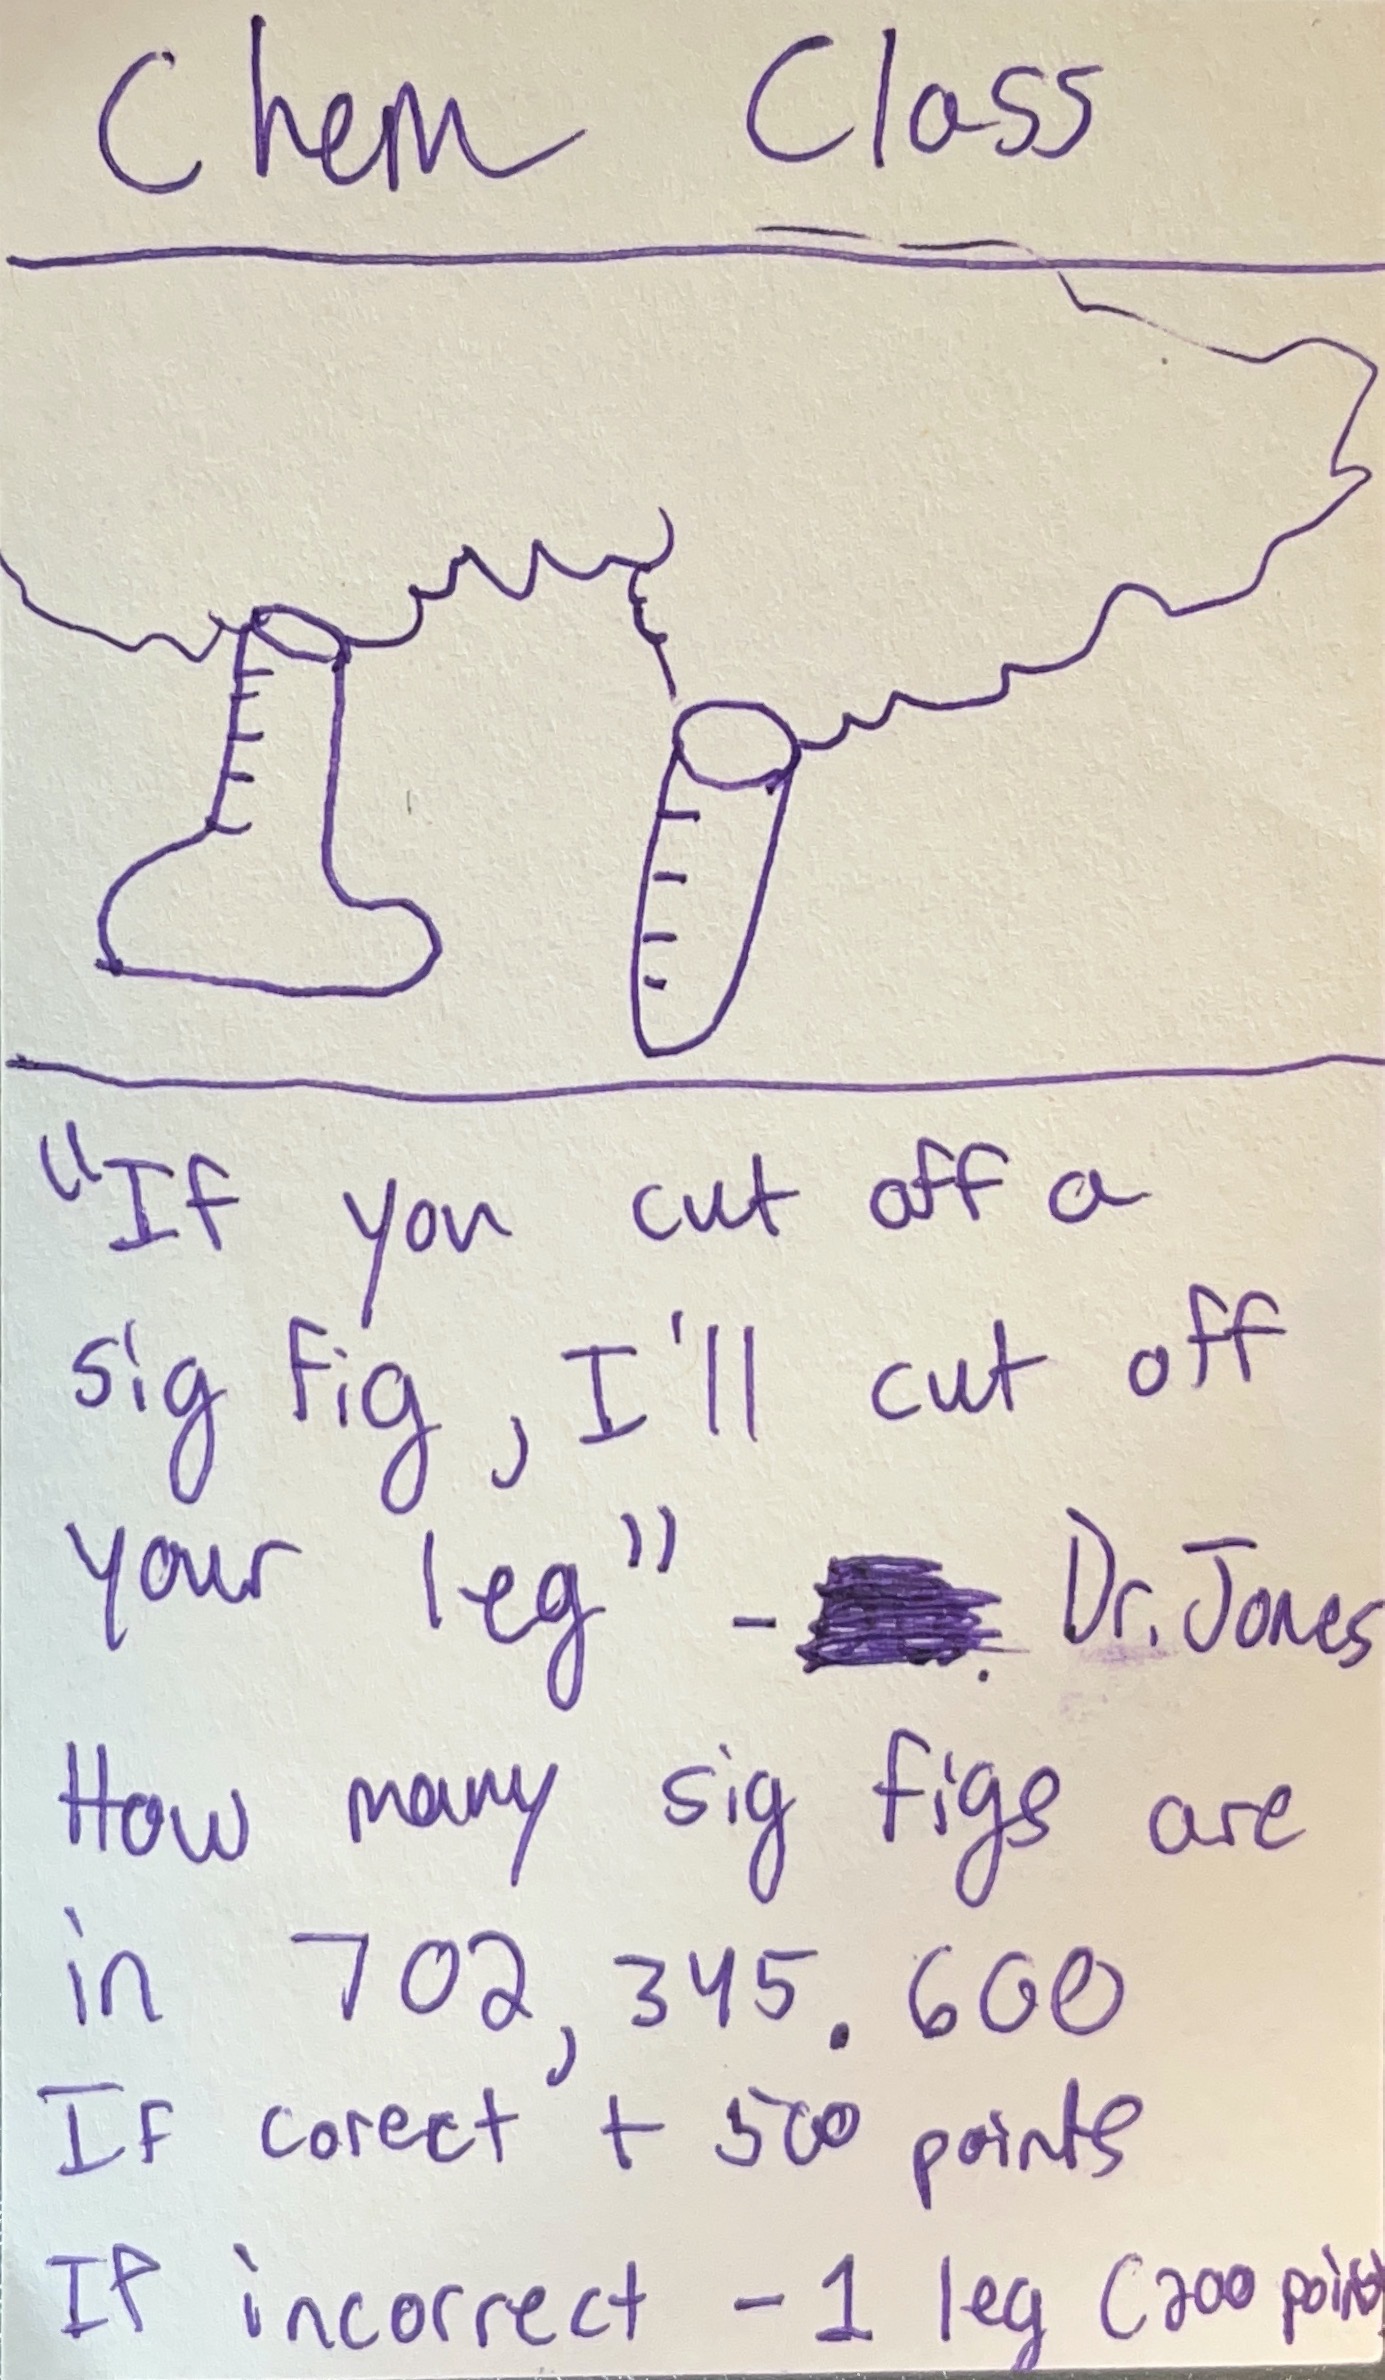 Chem Class
"If you cut off a
sig fig, I'll cut off
your leg" - Dr. Jones
How many sig figs are
in 702,345.600
If corect + 500 points
If incorrect - 1 leg (200 points)